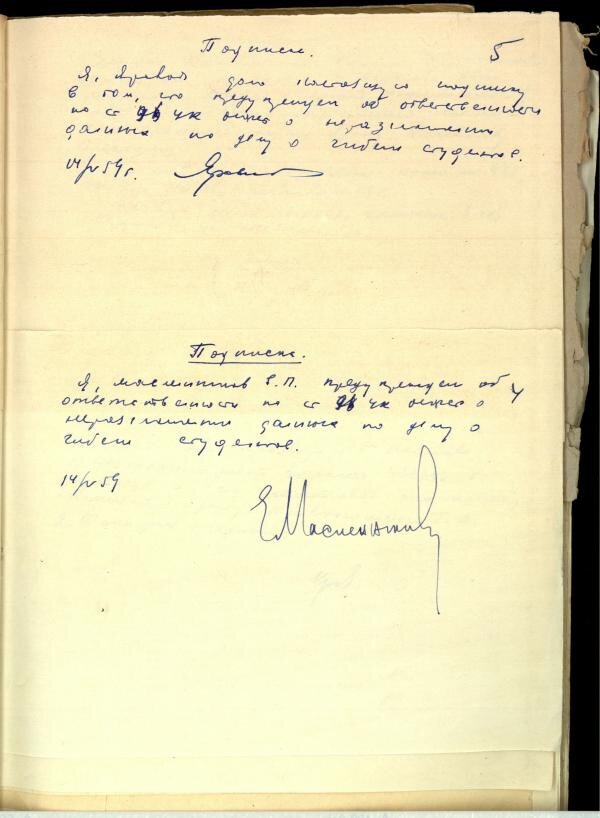 Подписка. 5
Я, Яровой даю настоящую подписку
в том, что предупрежден об ответственности
по ст 96 УК ... о неразглашении
данных по делу о гибели студентов.
14/V 59 г.
Подписка.
Я, Масленников Е.П. предупрежден об
ответственности по ст 96 УК ... о
неразглашении данных по делу о
гибели студентов.
14/V 59
Е Масленников